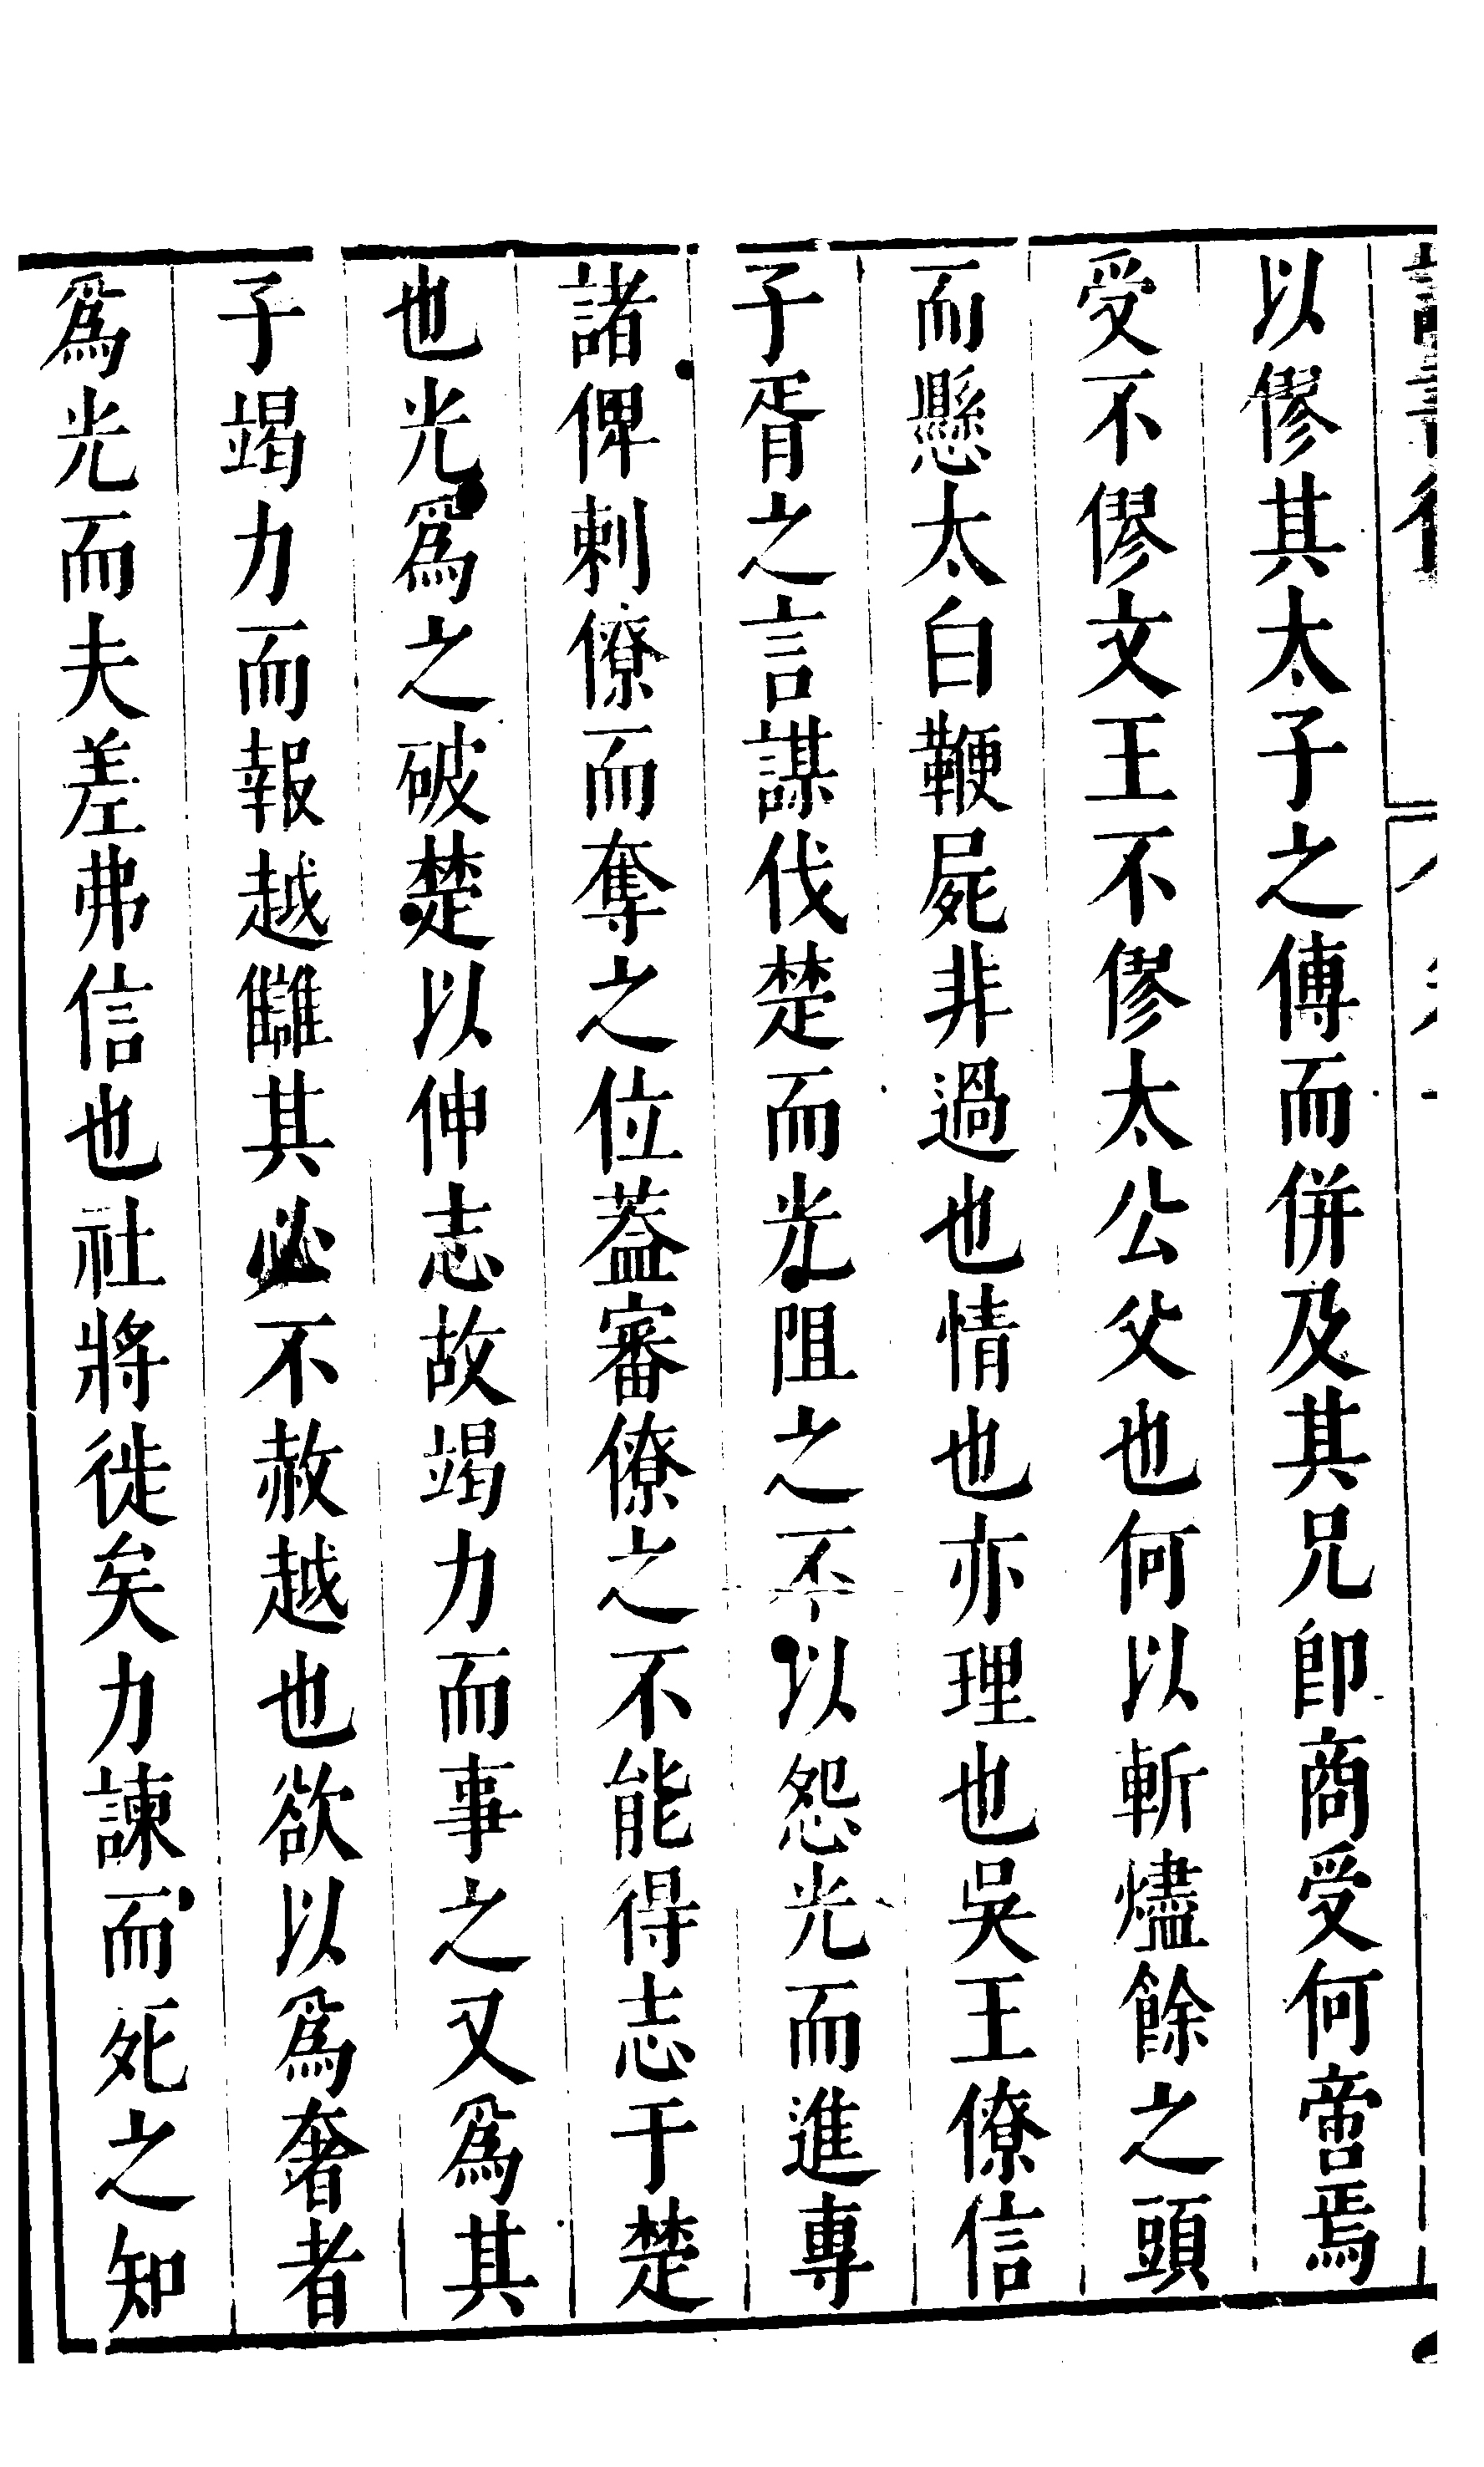 以僇其太子之傅而併及其兄卽商受何啻焉
受不僇文王不僇太公父也何以斬燼餘之頭
而懸太白鞭屍非過也情也亦理也吳王僚信
子胥之言謀伐楚而光阻之不以怨光而進專
諸俾刺僚而奪之位葢審僚之不能得志于楚
也光爲之破楚以伸志故竭力而事之又爲其
子竭力而報越讎其必不赦越也欲以爲奢者
爲光而夫差弗信也社將徙矣力諫而死之知